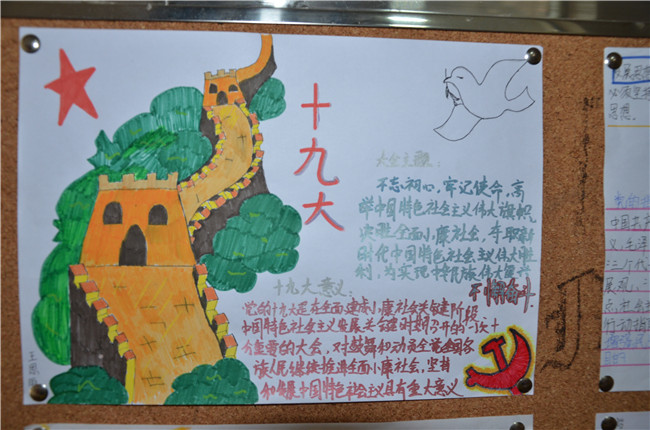 十九大
大会主题:
不忘初心,牢记使命,高
举中国特色社会主义伟大旗帜,
决胜全面小康社会,夺取新
时代中国特色社会主义伟大胜
利,为实现中华民族伟大复兴
不懈奋斗.
十九大意义:
党的十九大是在全面建成小康社会关键阶段
中国特色社会主义发展关键时期召开的一次十
分重要的大会,对鼓舞和动员全党全国各
族人民继续推进全面小康社会,坚持
和发展中国特色社会主义具有重大意义
必须坚持
思想.
中国共
三个代